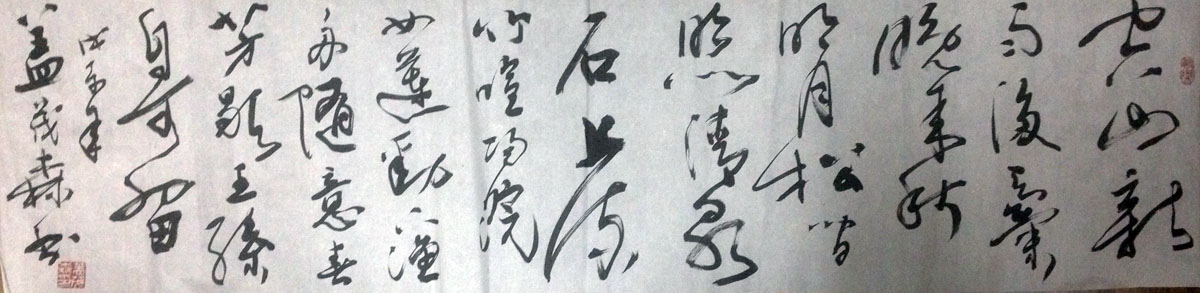 空山新
雨後天氣
晚来秋
明月松間
照清泉
石上流
竹喧歸浣
女蓮動下漁
舟隨意春
芳歇王孫
自可留
戊子年
盖茂森书